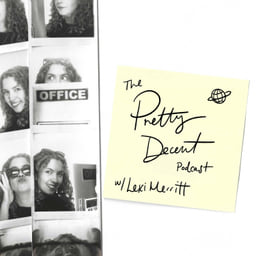 OFFICE
The
Pretty
Decent
Podcast
w/ Lexi Merritt